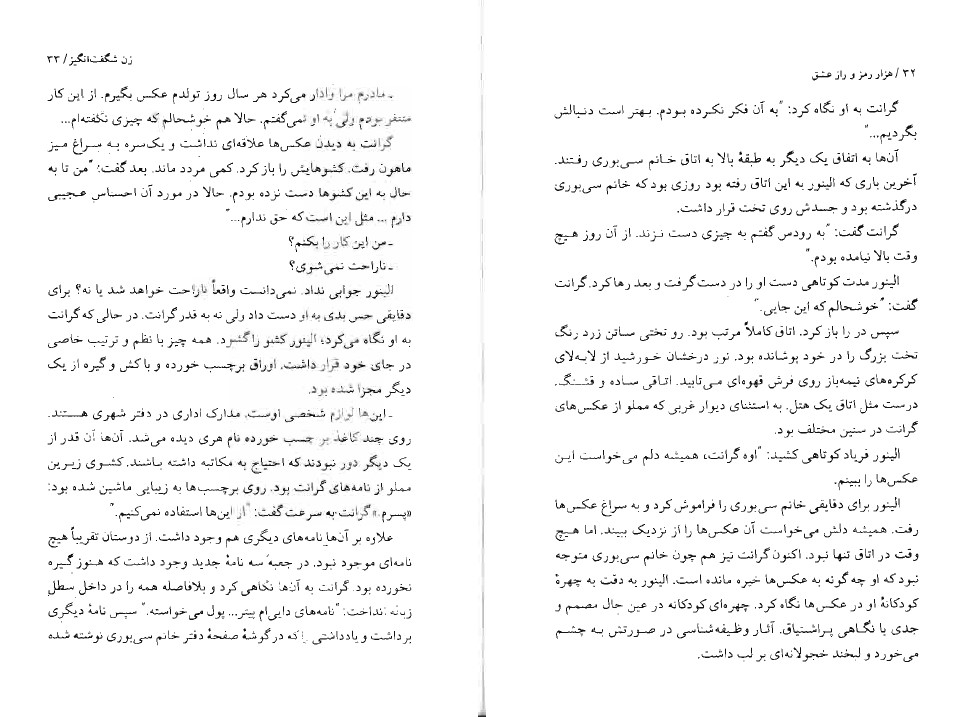 ۳۲ / هزار رمز و راز عشق
گرانت به او نگاه کرد: "به آن فکر نکرده بودم. بهتر است دنبالش
بگردیم..."
آن‌ها به اتفاق یک دیگر به طبقهٔ بالا به اتاق خانم سی‌بوری رفتند.
آخرین باری که الینور به این اتاق رفته بود روزی بود که خانم سی‌بوری
درگذشته بود و جسدش روی تخت قرار داشت.
گرانت گفت: "به رودس گفتم به چیزی دست نزند. از آن روز هیچ
وقت بالا نیامده بودم."
الینور مدت کوتاهی دست او را در دست‌گرفت و بعد رها کرد. گرانت
گفت: "خوشحالم که این جایی."
سپس در را باز کرد. اتاق کاملاً مرتب بود. رو تختی ساتن زرد رنگ
تخت بزرگ را در خود پوشانده بود. نور درخشان خورشید از لابه‌لای
کرکره‌های نیمه‌باز روی فرش قهوه‌ای می‌تابید. اتاقی ساده و قشنگ.
درست مثل اتاق یک هتل. به استثنای دیوار غربی که مملو از عکس‌های
گرانت در سنین مختلف بود.
الینور فریاد کوتاهی کشید: "اوه گرانت، همیشه دلم می‌خواست این
عکس‌ها را ببینم.
الینور برای دقایقی خانم سی‌بوری را فراموش کرد و به سراغ عکس‌ها
رفت. همیشه دلش می‌خواست آن عکس‌ها را از نزدیک ببیند. اما هیچ
وقت در اتاق تنها نبود. اکنون گرانت نیز هم چون خانم سی‌بوری متوجه
نبود که او چه گونه به عکس‌ها خیره مانده است. الینور به دقت به چهرهٔ
کودکانهٔ او در عکس‌ها نگاه کرد. چهره‌ای کودکانه در عین حال مصمم و
جدی با نگاهی پراشتیاق. آثار وظیفه‌شناسی در صورتش به چشم
می‌خورد و لبخند خجولانه‌ای بر لب داشت.
زن شگفت‌انگیز / ۳۳
ـ مادرم مرا وادار می‌کرد هر سال روز تولدم عکس بگیرم. از این کار
متنفر بودم ولی به او نمی‌گفتم. حالا هم خوشحالم که چیزی نگفته‌ام...
گرانت به دیدن عکس‌ها علاقه‌ای نداشت و یک‌سره به سراغ میز
ماهون رفت. کشوهایش را باز کرد. کمی مردد ماند. بعد گفت: "من تا به
حال به این کشوها دست نزده بودم. حالا در مورد آن احساس عجیبی
دارم ... مثل این است که حق ندارم..."
ـ من این کار را بکنم؟
ـ ناراحت نمی‌شوی؟
الینور جوابی نداد. نمی‌دانست واقعاً ناراحت خواهد شد یا نه؟ برای
دقایقی حس بدی به او دست داد ولی نه به قدر گرانت. در حالی که گرانت
به او نگاه می‌کرد، الینور کشو را گشود. همه چیز با نظم و ترتیب خاصی
در جای خود قرار داشت. اوراق برچسب خورده و با کش و گیره از یک
دیگر مجزا شده بود.
ـ این‌ها لوازم شخصی اوست. مدارک اداری در دفتر شهری هستند.
روی چند کاغذ بر چسب خورده نام هری دیده می‌شد. آن‌ها آن قدر از
یک دیگر دور نبودند که احتیاج به مکاتبه داشته باشند. کشوی زیرین
مملو از نامه‌های گرانت بود. روی برچسب‌ها به زیبایی ماشین شده بود:
«پسرم.» گرانت به سرعت گفت: "از این‌ها استفاده نمی‌کنیم."
علاوه بر آن‌ها نامه‌های دیگری هم وجود داشت. از دوستان تقریباً هیچ
نامه‌ای موجود نبود. در جعبه سه نامهٔ جدید وجود داشت که هنوز گیره
نخورده بود. گرانت به آن‌ها نگاهی کرد و بلافاصله همه را در داخل سطل
زباله انداخت: "نامه‌های دایی‌ام پیتر... پول می‌خواسته." سپس نامهٔ دیگری
برداشت و یادداشتی را که در گوشهٔ صفحهٔ دفتر خانم سی‌بوری نوشته شده